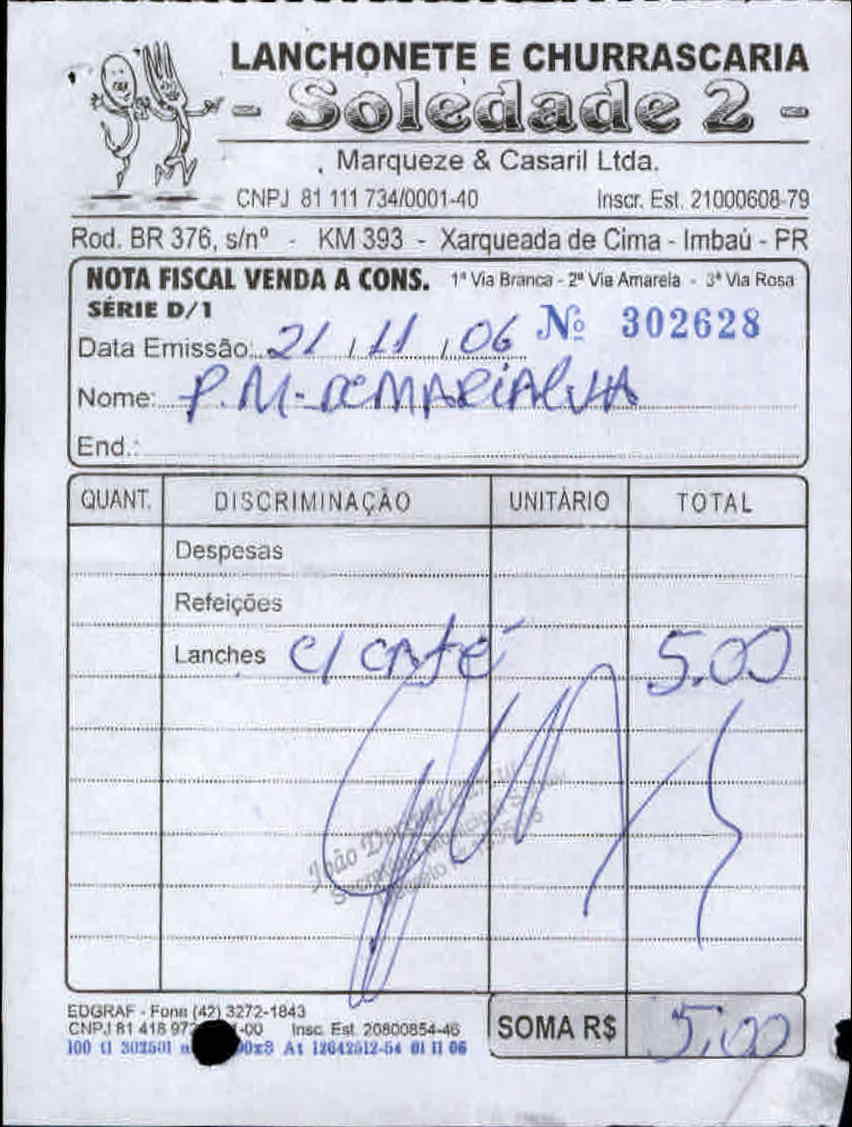 LANCHONETE E CHURRASCARIA
- Soledade 2 -
Marqueze & Casaril Ltda.
CNPJ 81 111 734/0001-40 Inscr. Est. 21000608-79
Rod. BR 376, s/nº - KM 393 - Xarqueada de Cima - Imbaú - PR
NOTA FISCAL VENDA A CONS. 1ª Via Branca - 2ª Via Amarela - 3ª Via Rosa
SÉRIE D/1
Nº 302628
Data Emissão: 21 / 11 / 06
Nome: P.M. DE MARIALVA
End.:
QUANT. DISCRIMINAÇÃO UNITÁRIO TOTAL
Despesas
Refeições
Lanches C/ CAFÉ 5.00
João
EDGRAF - Fone (42) 3272-1843
CNPJ 81 418 97 -00 Insc. Est. 20800854-46
100 tl 302501 At 12642512-54 01 11 06
SOMA R$ 5,00